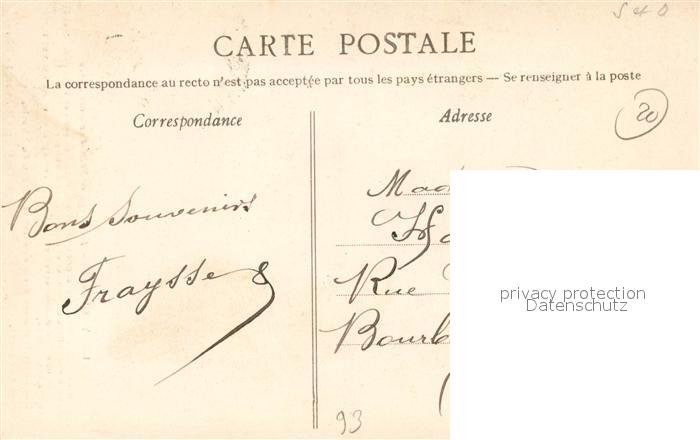 S & O
CARTE POSTALE
La correspondance au recto n'est pas acceptée par tous les pays étrangers — Se renseigner à la poste
Correspondance
Adresse
20
Bons souvenirs
Fraysse
Rue
privacy protection
Datenschutz
93